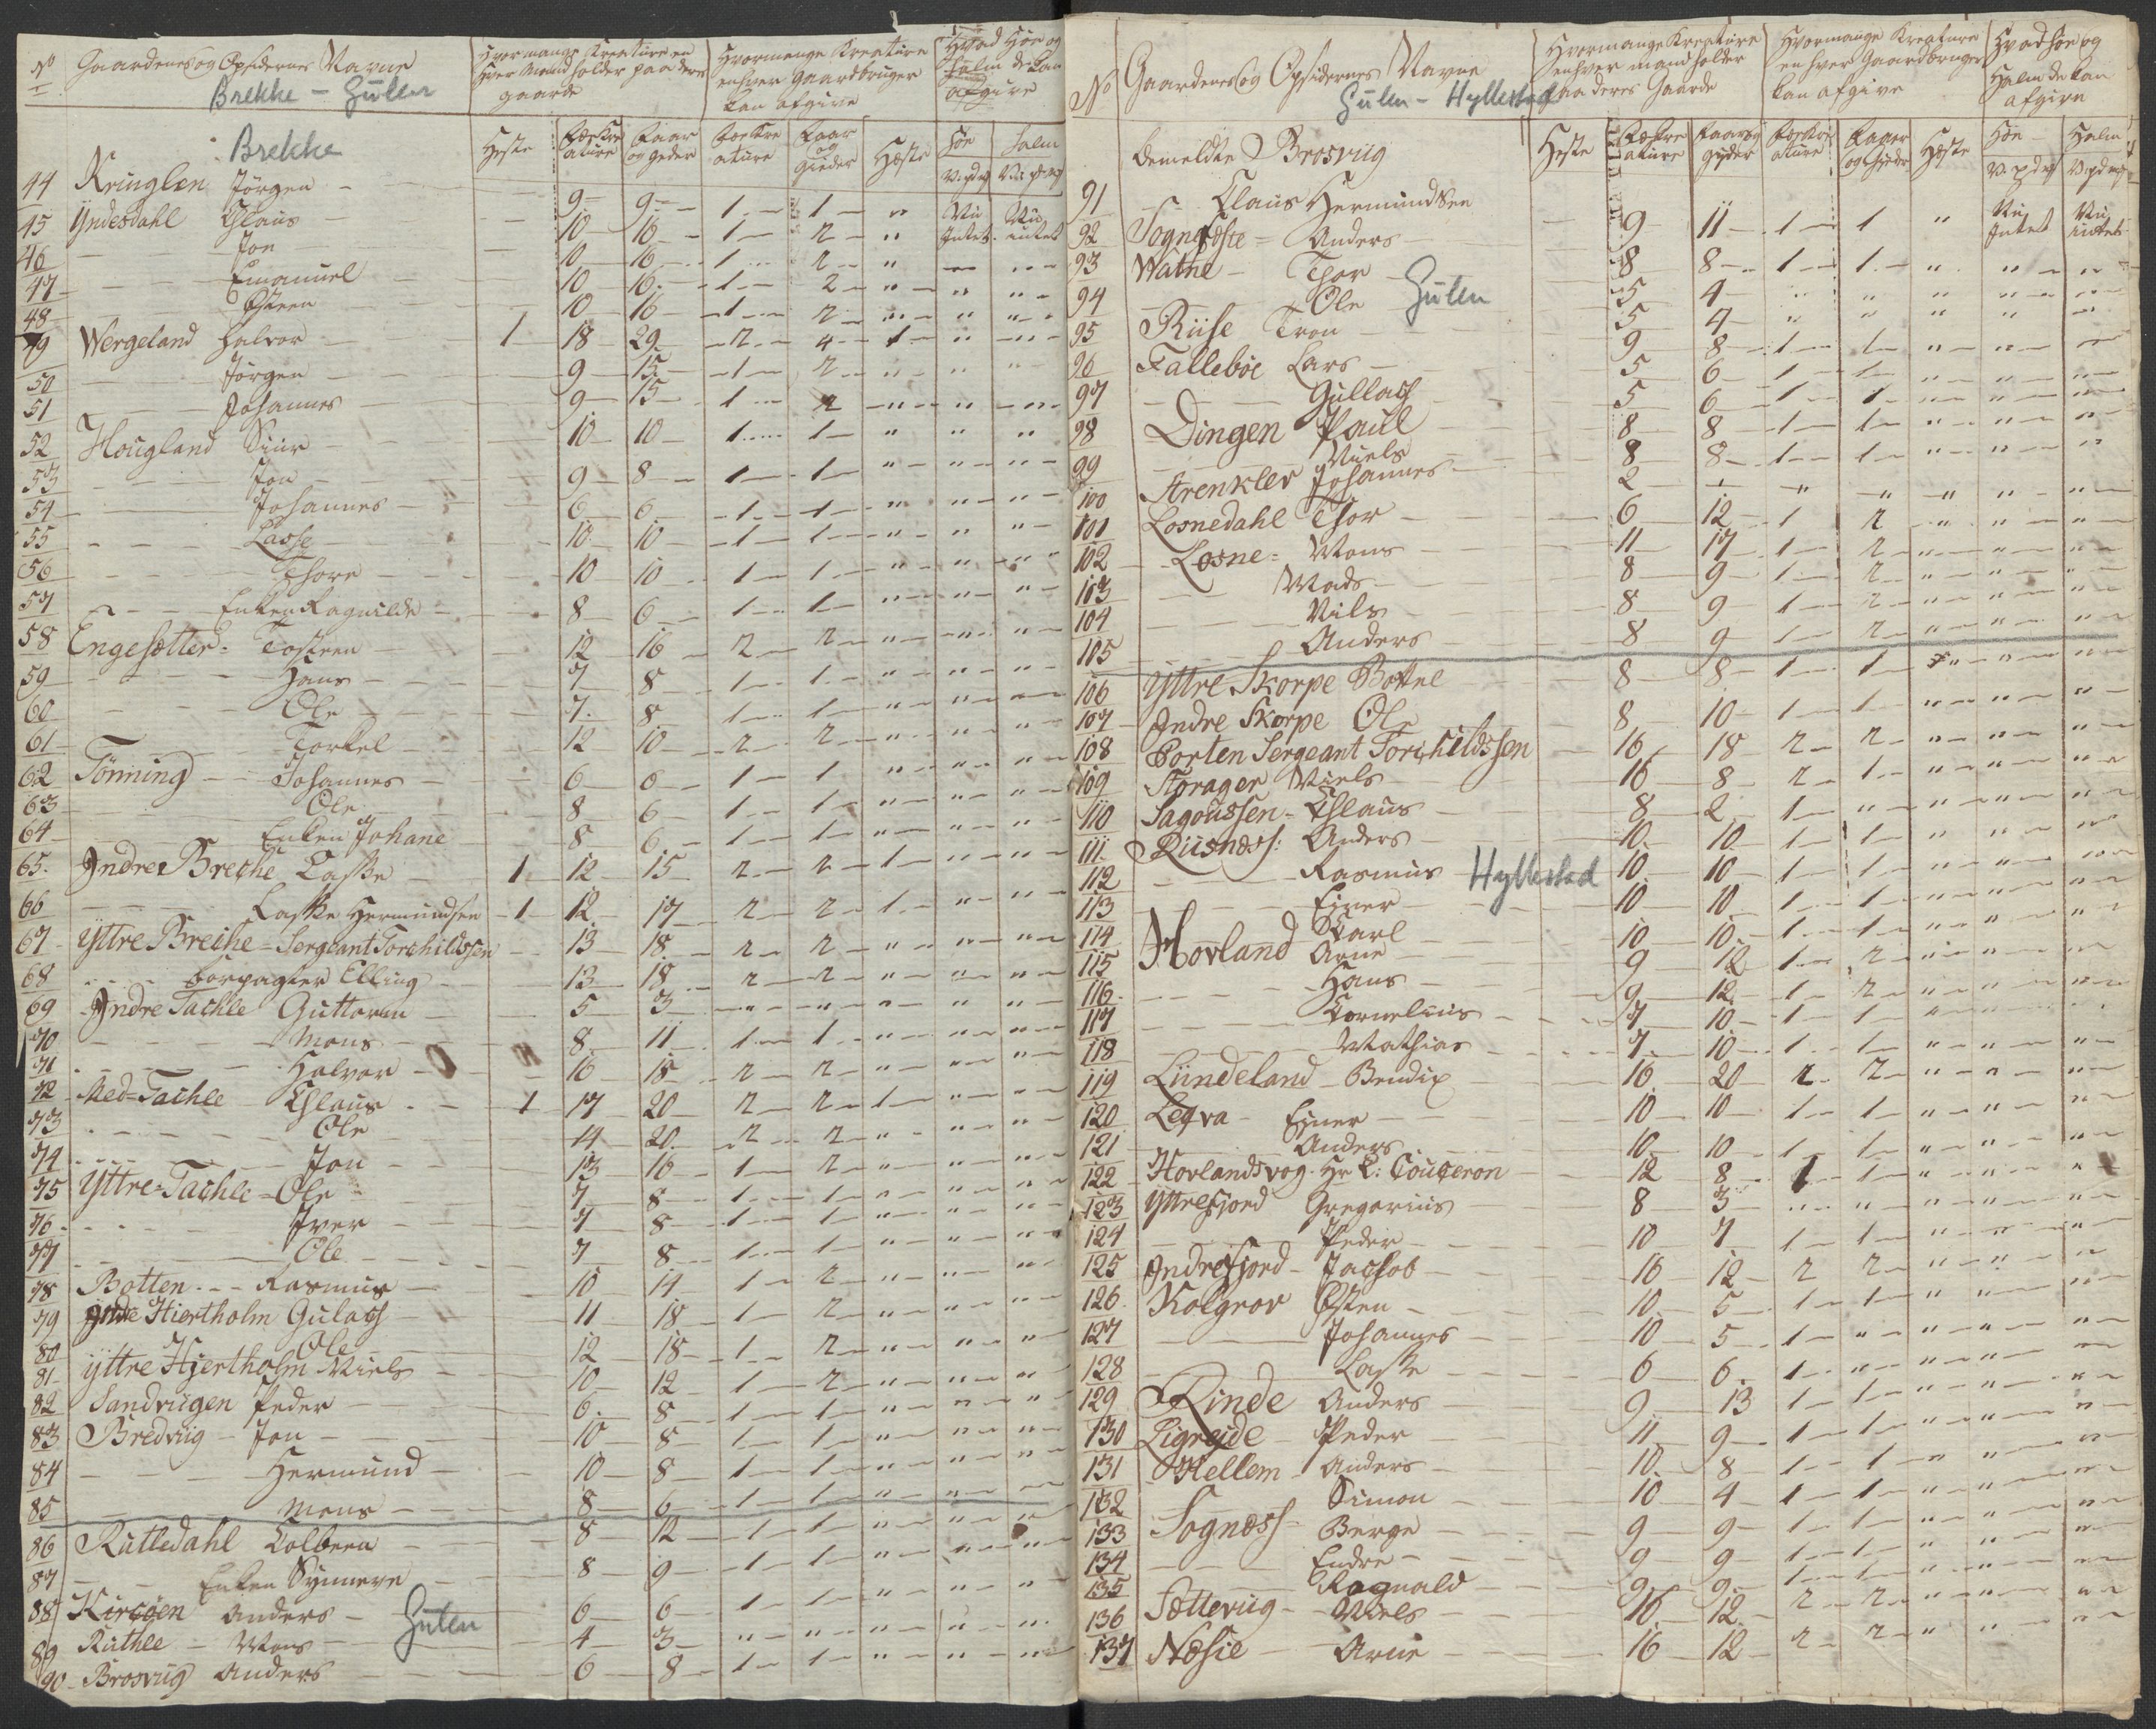 No Gaardenes og Opsidernes Navne
Brekke - Gulen
Hvormange Kreature en hver Mand holder paa deres gaarde
Hvormange Kreature enhver gaardbruger kan afgive
Hvad Høe og Halm de kan afgive
Heste
Faar og geder
Faar og gieder
Hæste
Høe
Halm
Brekke
44 Kringlen Jørgen - 9 - 9 - 1 - 1 - " Nu Nu
45 Yndesdahl Claus - 10 16 - 1 - 2 - " Intet intet
46 - Jon - 10 - 16 - 1 - 2 - "
47 - Emanuel 10 - 16 - 1 - 2 - " - " " -
48 - Østen 10 16 - 1 - 2 - " - " " -
49 Wergeland Halvor - 1 18 29 - 2 - 4 - 1 - " - " -
50 - Jørgen 9 - 15 - 1 - 2 - " - " "
51 - Johannes - 9 - 15 - 1 - 2 - " - " - " -
52 Hougland Siur 10 10 1 - 1 - " " "
53 - Jon 9 8 - 1 - 1 - " - " - " -
54 - Johannes - 6 6 - 1 - 1 - " - " - " -
55 - Lasse 10 10 - 1 - 1 - " - " " -
56 - Thore - 10 10 1 - 1 - " - " - " -
57 - Enken Ragnilde - 8 6 - 1 - 1 - " - " - " -
58 Engesætter - Tosteen - 12 16 - 2 - 2 - " - " - " -
59 - Hans - 7 8 - 1 - 1 - " - " - " -
60 - Ole - 7 8 - 1 - 1 - " - " - " -
61 - Torkel - 12 10 - 2 - 2 - " - " - " -
62 Tønning - Johannes - 6 6 - 1 - 1 " - " - " -
63 - Ole - 8 6 - 1 - 1 - " - " - " -
64 - Enken Johane 8 - 6 - 1 - 1 - " - " - " -
65 Indre Breche Lasse - 1 12 15 - 2 - 2 - 1 - " - " -
66 - Lasse Hermundsen - 1 - 12 - 17 - 2 - 2 - 1 - " - " -
67 Yttre Breche - Sergeant Torchildssen - 13 - 18 - 2 - 2 - " - " - " -
68 - forpagter Elling 13 - 18 - 2 - 2 - " - " - " -
69 Indre Tachle Guttorm - 5 3 - " - " - " - " " -
70 - Mons - 8 11 - 1 - 1 - " - " - " -
71 - Halvor - 16 - 18 - 2 - 2 - " - " - " -
72 Med-Tachle Claus - 1 17 20 - 2 - 2 - 1 - " - " -
73 - Ole 14 - 20 - 2 - 2 - " - " - " -
74 - Jon - 13 16 - 1 - 2 - " - " - " -
75 Yttre-Tachle - Ole - 7 8 - 1 - 1 - " - " - " -
76 - Iver - 7 8 - 1 - 1 - " - " - " -
77 - Ole - 7 - 8 - 1 - 1 - " - " - " -
78 Botten - Rasmus - 10 14 1 - 2 - " - " - " -
79 Indre Hiertholm Gulach - 11 18 - 1 - 2 - " - " - " -
80 - Ole - 12 18 - 1 - 2 - " - " - " -
81 Yttre Hjertholm Niels - 10 12 - 1 - 2 - " - " - "
82 Sandviigen Peder - 6 - 8 - 1 - 1 - " - " - "
83 Bredviig - Jon - 10 8 - 1 - 1 - " - " - "
84 - Hermund - 10 - 8 - 1 - 1 - " - " - "
85 - Mons - 8 - 6 - 1 - 1 - " - " - "
86 Rutledahl Colbeen - 8 12 - 1 - 1 - " - " - "
87 - Enken Synneve - 8 9 - 1 - 1 - " - " - "
88 Kircøen Anders - Gulen 6 6 - 1 - 1 - " - " - "
89 Ruthle - Mons - 4 - 3 - " - " - " - " - "
90 - Brosviig Anders - 6 - 8 - 1 - 1 - " - " - "
No Gaardenes og Opsidernes Navne
Gulen - Hyllestad
Hvormange Kreature enhver mand holder paa deres Gaarde
Hvormange Kreature enhver Gaardbruger kan afgive
Hvad høe og Halm de kan afgive
Heste
Hæste
Høe
Halm
bemeldte Brosviig
91 - Claus Hermundsen 9 - 11 - 1 - 1 " Nu Intet Nu intet
92 Sognefæste - Anders - 8 8 - 1 - 1 - " " - "
93 Watne - Thor - 5 4 - " " " " - "
94 - Ole Gulen 5 4 - " " " " - "
95 Riise Tron - 9 8 - 1 - 1 - " - " - "
96 Fallebøe Lars - 5 6 - 1 - 1 - " - " - "
97 - Gullach 5 6 - 1 - 1 - " - " - "
98 Dingen Paul 8 8 - 1 - 1 - " - " - "
99 - Niels 8 8 - 1 - 1 - " - " - "
100 Strenklev Johannes - 2 - " - " - " - " - "
101 Losnedahl Thor - 6 12 - 1 2 - " - " - "
102 - Losne - Mons - 11 17 - 1 - 2 - " - " - "
103 - Mads - 8 9 - 1 - 2 - " - " - "
104 - Nils 8 9 - 1 - 2 - " - " - "
105 - Anders - 8 9 - 1 - 2 - " - " - "
106 Yttre Skorpe Bottel 8 8 - 1 - 1 - " - " - "
107 Indre Skorpe Ole 8 10 - 1 - 1 - " - " - "
108 Porten Sergeant Torchildssen - 16 18 2 - 2 - " - " - "
109 Storager Niels 16 8 - 2 - 1 - " - " - "
110 Sagoussen - Claus - 8 2 - 1 - " - " - "
111 Riisnæss: Anders - 10 10 1 - 1 - " - "
112 - Rasmus Hyllestad 10 10 1 - 1 - " - " - "
113 - Einer - 10 10 1 - 1 - " - " - "
114 - Karl - 10 10 - 1 - 1 - " - " - "
115 Hovland Arne - 9 12 1 - 2 - " - " - "
116 - Hans - 9 - 12 - 1 - 2 - " - " - "
117 - Cornelius - 7 10 - 1 - 1 - " - " - "
118 - Mathias - 7 10 - 1 - 1 - " - " - "
119 Lündeland - Bendix 16 20 2 - 2 - " - " - "
120 Leqva - Einer - 10 10 - 1 - 1 - " - " - "
121 - Anders - 10 10 - 1 - 1 - " - " - "
122 - Hovlandsvog - Hr L: Couceron 12 8 - 1 1 - " - " - "
123 Yttrefjord Gregorius - 8 3 " - " - " - " - "
124 - Peder - 10 7 1 - 1 - " - " - "
125 Indrefjord - Jachob - 16 12 - 2 2 - " - " - "
126 Kolgrov Østen - 10 5 - 1 - 1 - " - " - "
127 - Johannes - 10 5 - 1 - " - " - " - "
128 - Lasse - 6 6 1 - " - " - " - "
129 Rinde Anders - 9 13 1 - 1 - " - " - "
130 Ligrejde - Peder - 11 9 - 1 - 1 - " - " - "
131 Hellem - Anders - 10 8 - 1 - 1 - " - " - "
132 Simon - 10 4 - 1 - 1 - " - " - "
133 Sognæss - Berge - 9 9 - 1 - 1 - " - " - "
134 - Endre - 9 9 - 1 - 1 - " - " - "
135 Ragnald - 9 9 - 1 - 1 - " - " - "
136 Sætteviig - Niels - 16 12 - 2 - 2 - " - " - "
137 Næsie - Arne - 16 12 - 2 - 2 - " " - "